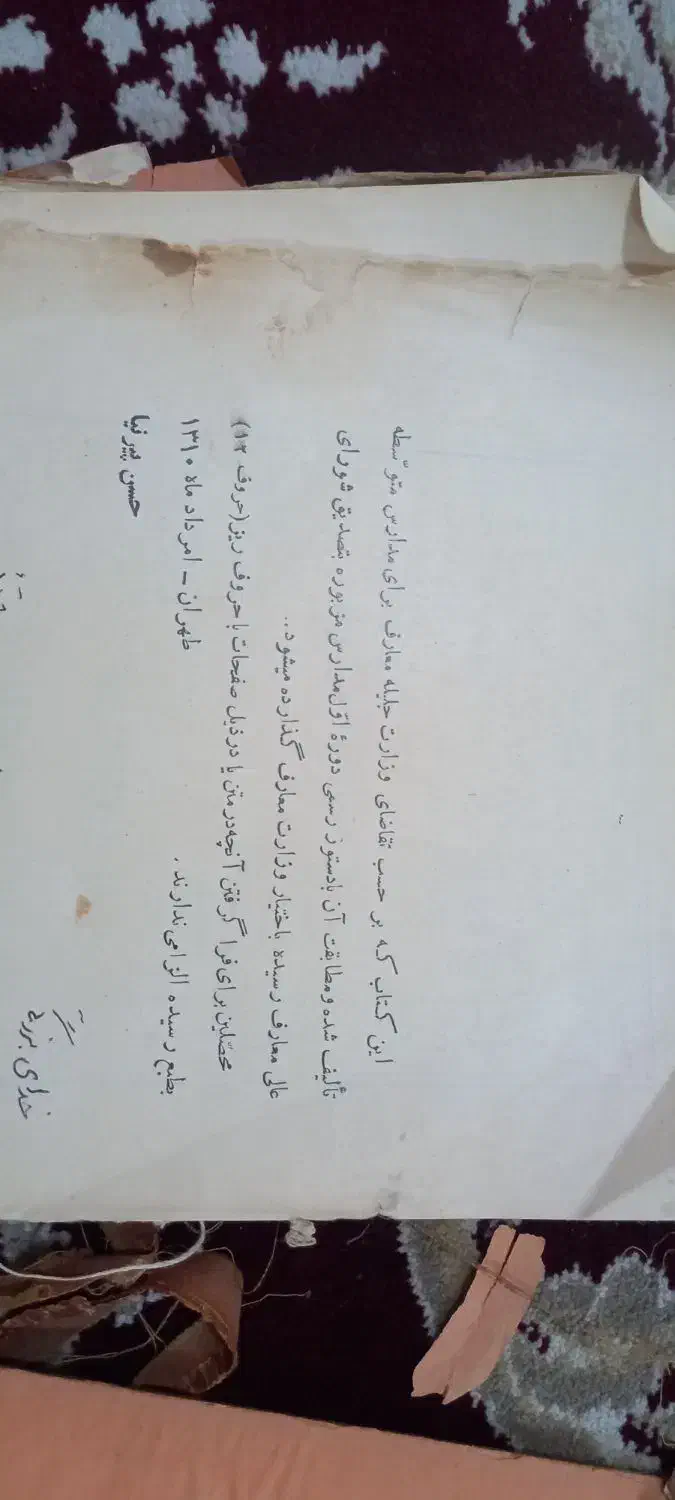 این کتاب که بر حسب تقاضای وزارت جلیله معارف برای مدارس متوسّطه
تألیف شده و مطابقت آن بادستور رسمی دورهٔ اوّل مدارس مزبوره بتصدیق شورای
عالی معارف رسیده باختیار وزارت معارف گذارده میشود..
محصّلین برای فرا گرفتن آنچه در متن یا در ذیل صفحات با حروف ریز (حروف ۱۲)
بطبع رسیده الزامی ندارند.
طهران - امرداد ماه ۱۳۱۰
حسن پیرنیا
خدای